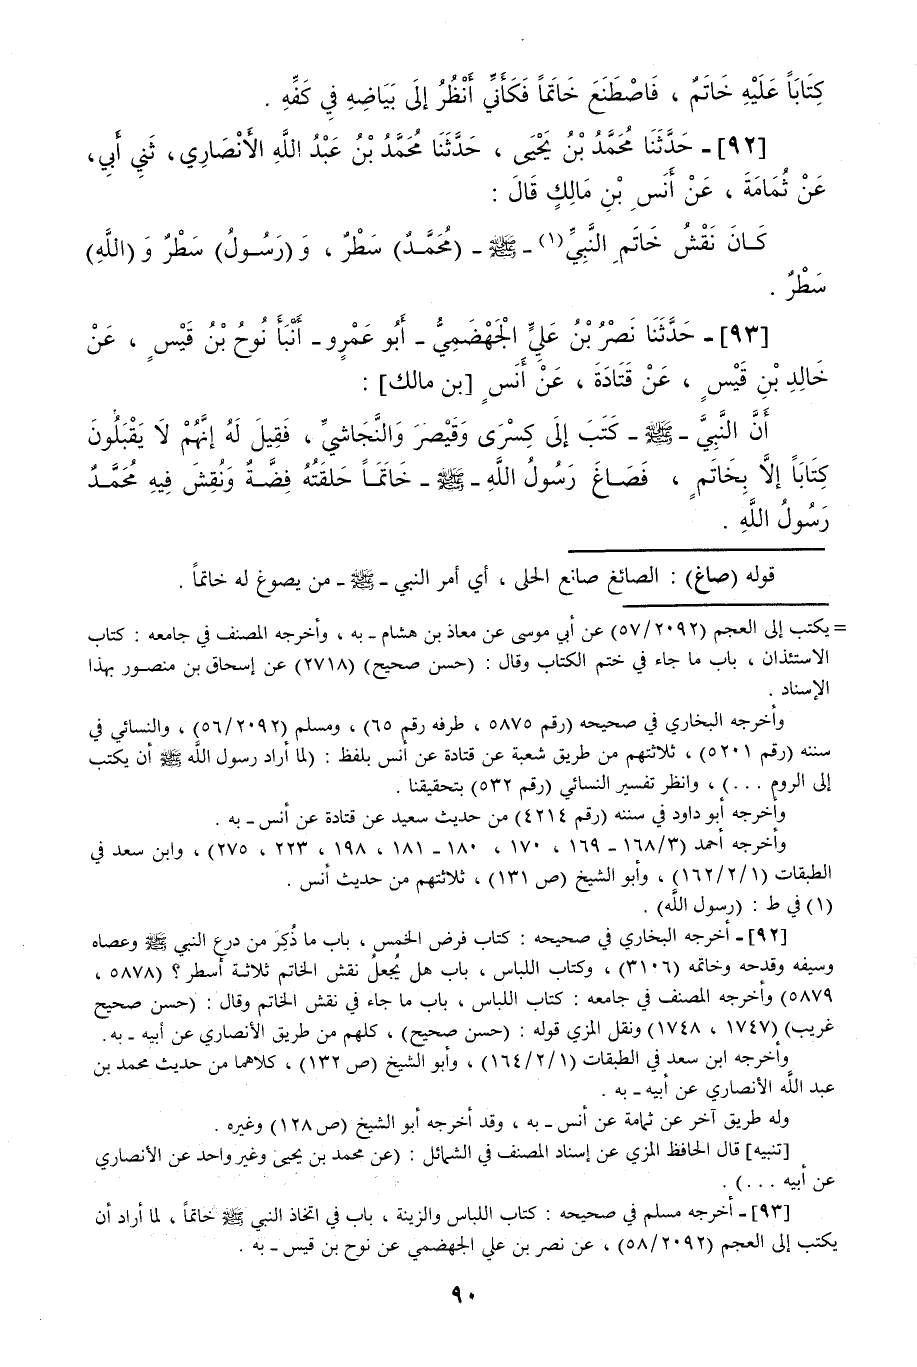 كِتَابَاً عَلَيْهِ خَاتَمٌ ، فَاصْطَنَعَ خَاتَماً فَكَأَنِّي أَنْظُرُ إلَى بَيَاضِهِ فِي كَفِّهِ .
[٩٢] ـ حَدَّثَنَا مُحَمَّدُ بْنُ يَحْيَى ، حَدَّثَنَا مُحَمَّدُ بْنُ عَبْدُ اللَّهِ الأَنْصَارِي ، ثَنِي أَبِي،
عَنْ ثُمَامَةَ ، عَنْ أَنَسِ بْنِ مَالِكٍ قَالَ :
كَـانَ نَقْشُ خَاتَمِ النَّبِيِّ(١) ـ ﷺ ـ (مُحَمَّـدٌ) سَطْرٌ ، وَ (رَسُـولُ) سَطْرٌ وَ (اللَّهِ)
سَطْرٌ .
[٩٣] ـ حَدَّثَنَا نَصْرُ بْنُ عَلِيٍّ الْجَهْضَمِيُّ ـ أَبُو عَمْرٍو ـ أَنْبَأَ نُوحُ بْنُ قَيْسٍ ، عَنْ
خَالِدِ بْنِ قَيْسٍ ، عَنْ قَتَادَةَ ، عَنْ أَنَسٍ [بن مالك] :
أَنَّ النَّبِيَّ ـ ﷺ ـ كَتَبَ إلَى كِسْرَى وَقَيْصرَ وَالنَّجَاشِيِّ ، فَقِيلَ لَهُ إنَّهُمْ لَا يَقْبَلُونَ
كِتَابَاً إلَّا بِخَاتَمٍ ، فَصَـاغَ رَسُـولُ اللَّهِ ـ ﷺ ـ خَاتَمَـاً حَلقَتُهُ فِضَّـةٌ وَنُقِشَ فِيهِ مُحَمَّـدٌ
رَسُولُ اللَّهِ .
قوله (صاغ) : الصائغ صانع الحلى ، أي أمر النبي ـ ﷺ ـ من يصوغ له خاتماً .
= يكتب إلى العجم (٥٧/٢٠٩٢) عن أبي موسى عن معاذ بن هشام ـ به ، وأخرجه المصنف في جامعه : كتاب
الاستئذان ، باب ما جاء في ختم الكتاب وقال : (حسن صحيح) (٢٧١٨) عن إسحاق بن منصـور بهذا
الإسناد .
وأخرجه البخاري في صحيحه (رقم ٥٨٧٥ ، طرفه رقم ٦٥) ، ومسلم (٥٦/٢٠٩٢) ، والنسائي في
سننه (رقم ٥٢٠١) ، ثلاثتهم من طريق شعبة عن قتادة عن أنس بلفظ : (لما أراد رسول اللَّه ﷺ أن يكتب
إلى الروم . . .) ، وانظر تفسير النسائي (رقم ٥٣٢) بتحقيقنا .
وأخرجه أبو داود في سننه (رقم ٤٢١٤) من حديث سعيد عن قتادة عن أنس ـ به .
وأخرجه أحمد (١٦٨/٣ ـ ١٦٩ ، ١٧٠ ، ١٨٠ ـ ١٨١ ، ١٩٨ ، ٢٢٣ ، ٢٧٥) ، وابن سعد في
الطبقات (١٦٢/٢/١) ، وأبو الشيخ (ص ١٣١) ، ثلاثتهم من حديث أنس .
(١) في ط : (رسول اللَّه) .
[٩٢] ـ أخرجه البخاري في صحيحه : كتاب فرض الخمس ، باب ما ذُكِرَ من درع النبي ﷺ وعصاه
وسيفه وقدحه وخاتمه (٣١٠٦) ، وكتاب اللباس ، باب هل يُجعلُ نقش الخاتم ثلاثـة أسطر ؟ (٥٨٧٨ ،
٥٨٧٩) وأخرجه المصنف في جامعه : كتاب اللباس ، باب ما جاء في نقش الخاتم وقال : (حسن صحيح
غريب) (١٧٤٧ ، ١٧٤٨) ونقل المزي قوله : (حسن صحيح) ، كلهم من طريق الأنصاري عن أبيه ـ به.
وأخرجه ابن سعد في الطبقات (١٦٤/٢/١) ، وأبو الشيخ (ص ١٣٢) ، كلاهما من حديث محمد بن
عبد اللَّه الأنصاري عن أبيه ـ به .
وله طريق آخر عن ثمامة عن أنس ـ به ، وقد أخرجه أبو الشيخ (ص ١٢٨) وغيره .
[تنبيه] قال الحافظ المزي عن إسناد المصنف في الشمائل : (عن محمد بن يحيى وغير واحد عن الأنصاري
عن أبيه . . .) .
[٩٣] ـ أخرجه مسلم في صحيحه : كتاب اللباس والزينة ، باب في اتخاذ النبي ﷺ خاتماً ، لما أراد أن
يكتب إلى العجم (٥٨/٢٠٩٢) ، عن نصر بن علي الجهضمي عن نوح بن قيس ـ به .
٩٠